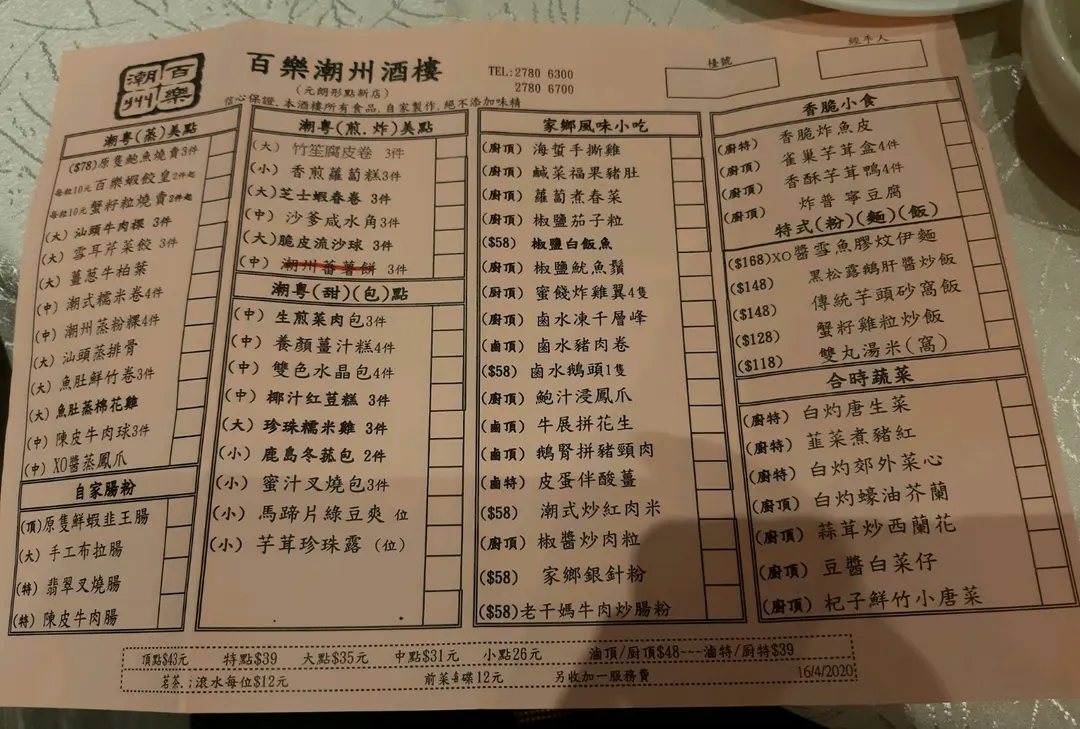 百樂
潮州
百樂潮州酒樓
(元朗形點新店)
TEL:2780 6300
2780 6700
信心保證,本酒樓所有食品,自家製作,絕不添加味精
檯號
經手人
潮粵(蒸)美點
($78)原隻鮑魚燒賣3件
每粒10元百樂蝦餃皇2件起
每粒10元蟹籽粒燒賣2件起
(大)汕頭牛肉粿 3件
(大)雪耳芹菜餃 3件
(大)薑葱牛柏葉
(中)潮式糯米卷4件
(中)潮州蒸粉粿4件
(大)汕頭蒸排骨
(大)魚肚鮮竹卷3件
(大)魚肚蒸棉花雞
(中)陳皮牛肉球3件
(中)XO醬蒸鳳爪
自家腸粉
(頂)原隻鮮蝦韭王腸
(大)手工布拉腸
(特)翡翠叉燒腸
(特)陳皮牛肉腸
潮粵(煎.炸)美點
(大) 竹笙腐皮卷 3件
(小) 香煎蘿蔔糕3件
(大)芝士蝦春卷 3件
(中) 沙爹咸水角3件
(大)脆皮流沙球 3件
(中) 潮州蕃薯餅 3件
潮粵(甜)(包)點
(中) 生煎菜肉包3件
(中) 養顏薑汁糕4件
(中) 雙色水晶包4件
(中) 椰汁红荳糕 3件
(大) 珍珠糯米雞 3件
(小) 鹿島冬菰包 2件
(小) 蜜汁叉燒包3件
(小) 馬蹄片綠豆爽 位
(小) 芋茸珍珠露 (位)
家鄉風味小吃
(廚頂) 海蜇手撕雞
(廚頂) 鹹菜福果豬肚
(廚頂) 蘿蔔煮春菜
(廚頂) 椒鹽茄子粒
($58) 椒鹽白飯魚
(廚頂) 椒鹽魷魚鬚
(廚頂) 蜜餞炸雞翼4隻
(廚頂) 鹵水凍千層峰
(鹵頂) 鹵水豬肉卷
($58) 鹵水鵝頭1隻
(廚頂) 鮑汁浸鳳爪
(鹵頂) 牛展拼花生
(鹵頂) 鵝腎拼豬頸肉
(鹵特) 皮蛋伴酸薑
($58) 潮式炒紅肉米
(廚頂) 椒醬炒肉粒
($58) 家鄉銀針粉
($58)老干媽牛肉炒腸粉
香脆小食
(廚特) 香脆炸魚皮
(廚頂) 雀巢芋茸盒4件
(廚頂) 香酥芋茸鴨4件
(廚頂) 炸普寧豆腐
特式(粉)(麵)(飯)
($168)XO醬雪魚膠炆伊麵
($148) 黑松露鵝肝醬炒飯
($148) 傳統芋頭砂窩飯
($128) 蟹籽雞粒炒飯
($118) 雙丸湯米(窩)
合時蔬菜
(廚特) 白灼唐生菜
(廚特) 韮菜煮豬紅
(廚特) 白灼郊外菜心
(廚頂) 白灼蠔油芥蘭
(廚頂) 蒜茸炒西蘭花
(廚頂) 豆醬白菜仔
(廚頂) 杞子鮮竹小唐菜
頂點$43元 特點$39 大點$35元 中點$31元 小點26元 滷頂/廚頂$48---滷特/廚特$39
茗茶,滾水每位$12元 前菜每碟12元 另收加一服務費 16/4/2020